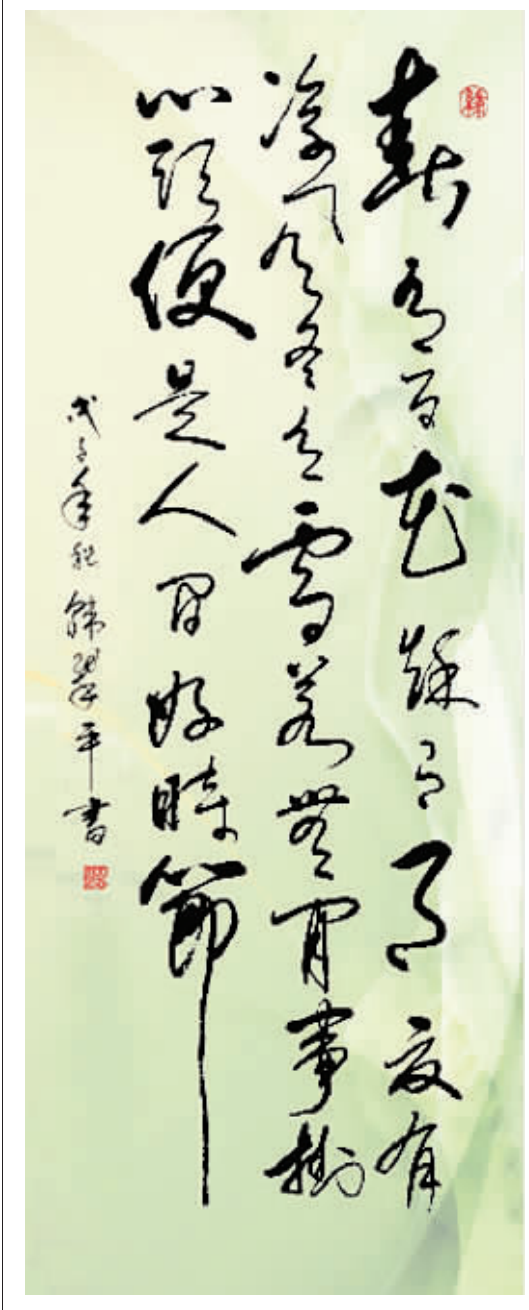 春有百花秋有月夏有
涼風冬有雪若無閒事掛
心頭便是人間好時節
戊子年秋韓翠平書